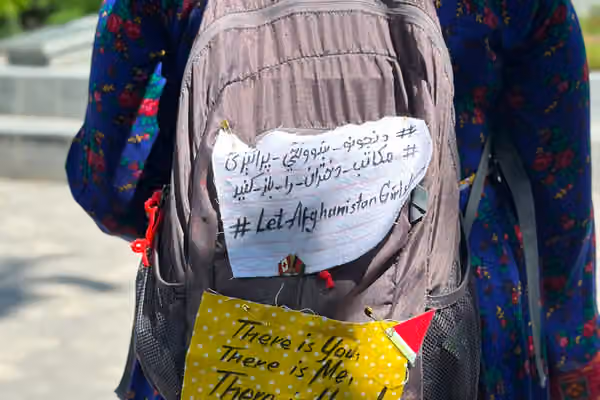 # د_نجونو_ښوونځي_پرانیزئ
# مکاتب_دختران_را_باز_کنید
# Let Afghanistan Girls
There is You,
There is Me,
There is